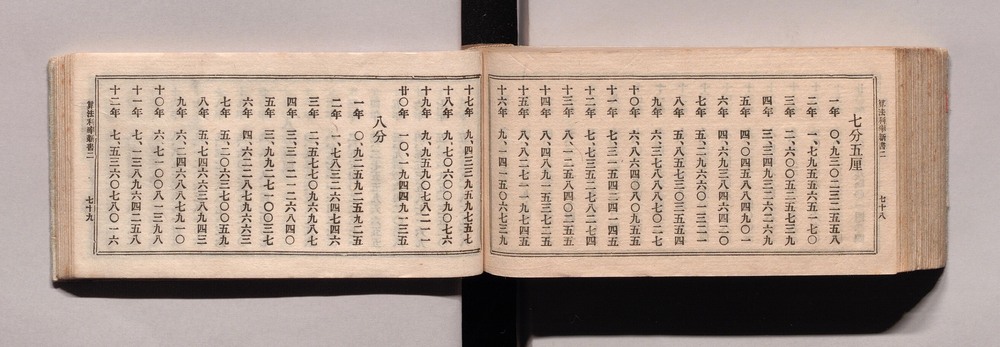 算法科學新書二
七十八
七分五厘
一年 〇、九三〇二三二五五八
二年 一、七九五五六五一七〇
三年 二、六〇〇五二五七三九
四年 三、三四九三二六二六九
五年 四、〇四五八八四九〇一
六年 四、六九三八四六四二〇
七年 五、二九六六〇一三二一
八年 五、八五七三〇三五五四
九年 六、三七八八八七〇二七
十〇年 六、八六四〇八〇九五五
十一年 七、三一五四二四一四五
十二年 七、七三五二七八二七四
十三年 八、一二五八四〇二五五
十四年 八、四八九一五三七二五
十五年 八、八二七一一九七四五
十六年 九、一四一五〇六七三九
十七年 九、四三三九五九七五七
十八年 九、七〇六〇〇九〇七六
十九年 九、九五九〇七八二一一
廿〇年 一〇、一九四四九一三五
八分
一年 〇、九二五九二五九二五
二年 一、七八三二六四七四六
三年 二、五七七〇九六九八七
四年 三、三一二一二六八四〇
五年 三、九九二七一〇〇三七
六年 四、六二二八七九六六三
七年 五、二〇六三七〇〇五九
八年 五、七四六六三八九四三
九年 六、二四六八八七九一〇
十〇年 六、七一〇〇八一三九八
十一年 七、一三八九六四二五八
十二年 七、五三六〇七八〇一六
算法科學新書二
七十九